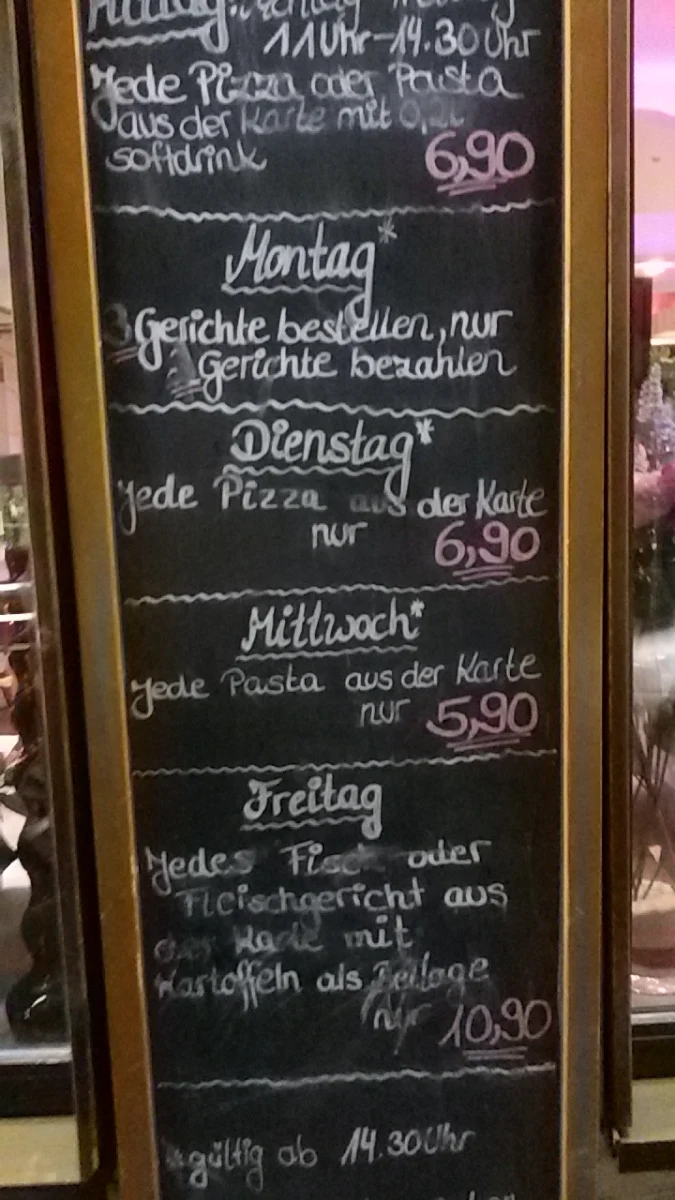 11 Uhr-14.30 Uhr
Jede Pizza oder Pasta
aus der Karte mit 0,2L
softdrink 6,90
Montag*
3 Gerichte bestellen, nur
Gerichte bezahlen
Dienstag*
Jede Pizza aus der Karte
nur 6,90
Mittwoch*
Jede Pasta aus der Karte
nur 5,90
Freitag
Jedes Fisch oder
Fleischgericht aus
der Karte mit
Kartoffeln als Beilage
nur 10,90
*gültig ab 14.30 Uhr